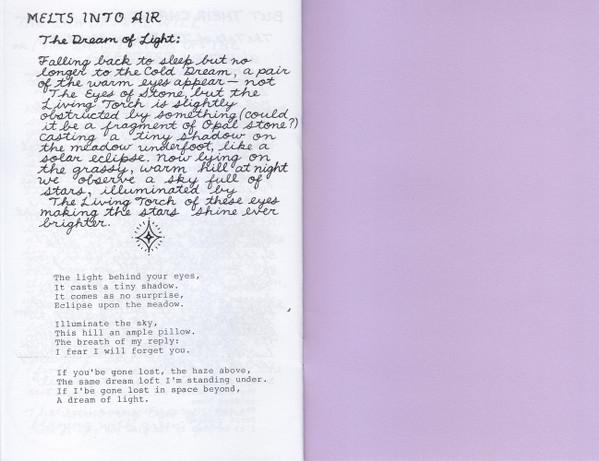 MELTS INTO AIR
The Dream of Light:
Falling back to sleep but no
longer to the Cold Dream, a pair
of the warm eyes appear — not
The Eyes of Stone, but the
Living Torch is slightly
obstructed by something (could
it be a fragment of Opal stone?)
casting a tiny shadow on
the meadow underfoot, like a
solar eclipse. Now lying on
the grassy, warm hill at night
we observe a sky full of
stars, illuminated by
The Living Torch of these eyes
making the stars shine ever
brighter.
The light behind your eyes,
It casts a tiny shadow.
It comes as no surprise,
Eclipse upon the meadow.
Illuminate the sky,
This hill an ample pillow.
The breath of my reply:
I fear I will forget you.
If you'be gone lost, the haze above,
The same dream loft I'm standing under.
If I'be gone lost in space beyond,
A dream of light.